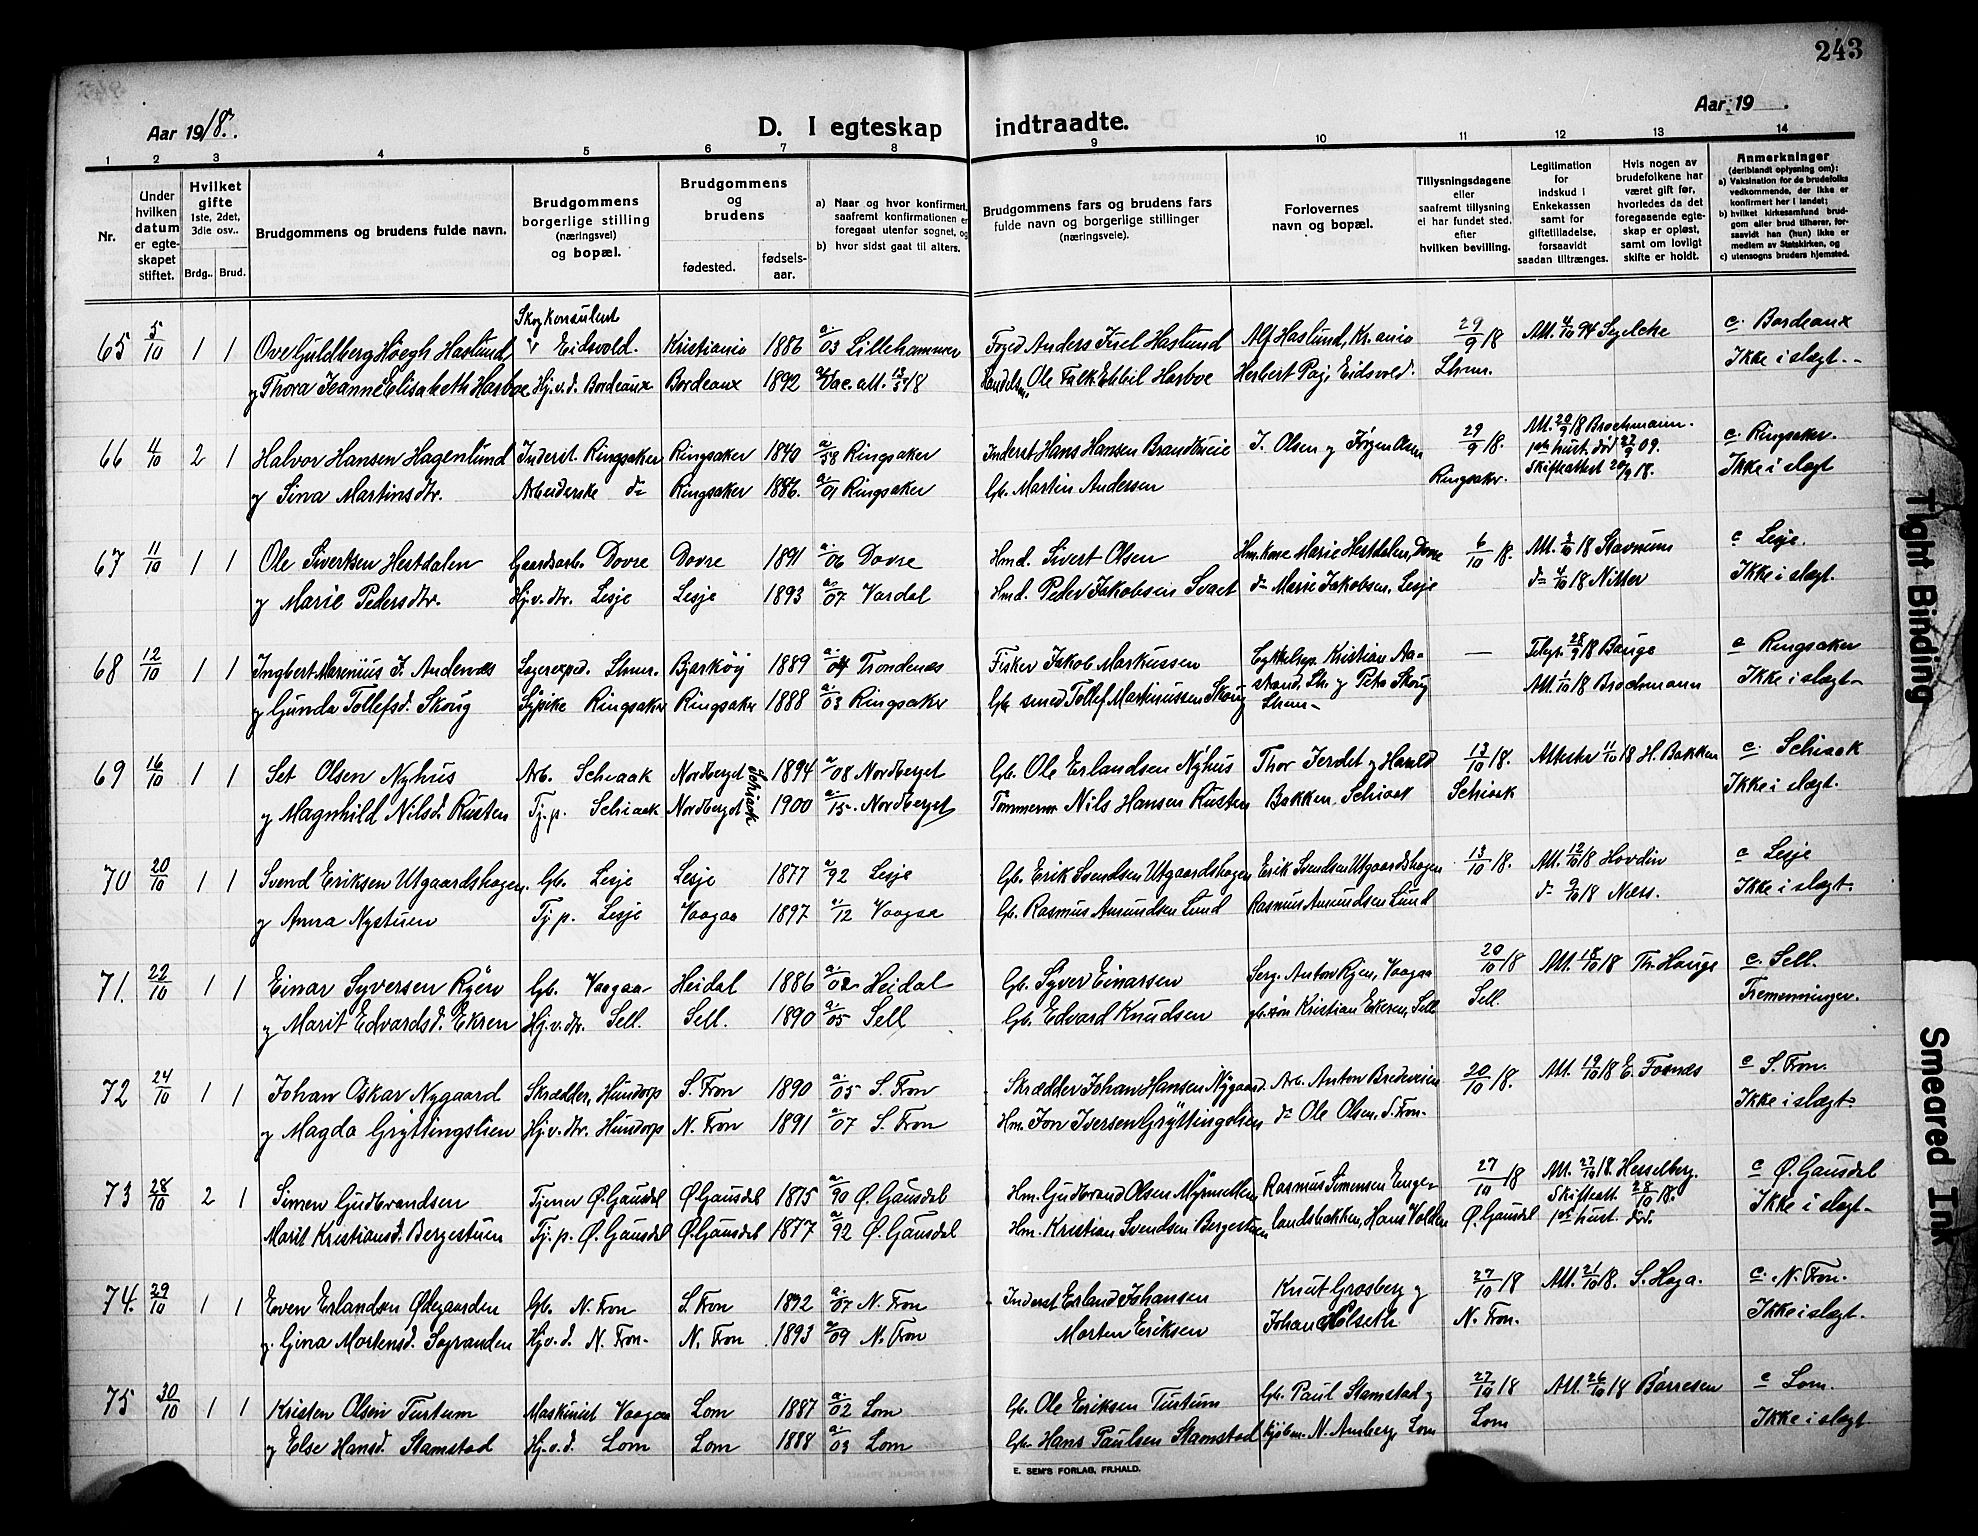 243
Aar 1918.
D. I egteskap indtraadte.
Aar 19 .
1 2 3 4 5 6 7 8 9 10 11 12 13 14
Nr.
Under hvilken datum er egteskapet stiftet.
Hvilket gifte 1ste, 2det, 3die osv..
Brdg.. Brud.
Brudgommens og brudens fulde navn.
Brudgommens borgerlige stilling (næringsvei) og bopæl.
Brudgommens og brudens
fødested.
fødsels-aar.
a) Naar og hvor konfirmert, saafremt konfirmationen er foregaat utenfor sognet, og
b) hvor sidst gaat til alters.
Brudgommens fars og brudens fars fulde navn og borgerlige stillinger (næringsveie).
Forlovernes navn og bopæl.
Tillysningsdagene eller saafremt tillysning ei har fundet sted, efter hvilken bevilling.
Legitimation for indskud i Enkekassen samt for giftetilladelse, forsaavidt saadan tiltrænges.
Hvis nogen av brudefolkene har været gift før, hvorledes da det foregaaende egteskap er opløst, samt om lovligt skifte er holdt.
Anmerkninger (deriblandt oplysning om): a) Vaksination for de brudefolks vedkommende, der ikke er konfirmert her i landet; b) hvilket kirkesamfund brudgom eller brud tilhører, forsaavidt han (hun) ikke er medlem av Statskirken, og c) utensogns bruders hjemsted.
65 5/10 1 1 Ove Guldberg Höegh Haslund Skogkonsulent Eidsvold. Kristiania 1886 a. 03 Lillehammer Foged Anders Juel Haslund Alf Haslund, Kr.ania 29/9 18 Att. 4/10 94 Segelcke c. Bordeaux
y Thora Jeanne Elisabeth Harboe Hj.v.d. Bordeaux Bordeaux 1892 Vac. att. Handelsm. Ole Falk Ebbil Harboe Herbert Paj, Eidsvold. Lhmr. Ikke i slægt.-
66 4/10 2 1 Halvor Hansen Hagenlund Inderst. Ringsaker Ringsaker 1840 a/58 Ringsaker Inderst Hans Hansen Brandbueie J. Olsen y Jörgen Olsen 29/9 18. Att. 20/9 18 Brochmann. 1ste hust. död 22/9 09. c. Ringsaker.
y Sina Martinsdtr. Arbeiderske do Ringsaker 1886. a/01 Ringsaker Gb. Martin Andersen Ringsaker. Skifteattest 20/9 18. Ikke i slægt
67 11/10 1 1 Ole Sivertsen Hestdalen Gaardsarb. Dovre Dovre 1891 a./06 Dovre Hmd. Sivert Olsen Hm.kone Marie Hestdalen, Dovre 6/10 18. Att. 3/10 18 Stavnum c Lesje.
y Marie Pedersdtr. Hj.v.dtr. Lesje Lesje 1893 a/07 Vardal Hmd. Peder Jakobsen Svaet do Marie Jakobsen, Lesje do 4/10 18 Nitter Ikke i slægt.
68 12/10 1 1 Ingbert Marenius J. Andersen Lagerexped. Lhmr. Bjarköy 1889 a./04 Trondenæs Fisker Jakob Markussen Cykkelrep. Kristian Aa- — Telegr. 28/9 18 Bauge c Ringsaker
y Gunda Tollefsd. Skoug Sypike Ringsaker Ringsaker 1888 a./03 Ringsaker Gb. smed Tollef Martinussen Skoug strand, Lhr. y Petra Skoug Lhmr.- Att. 1/10 18 Brochmann Ikke i slægt-
69 16/10 1 1 Set Olsen Nyhus Arb. Schiaak Nordberget Schiaak 1894 a/08 Nordberget Gb. Ole Erlandsen Nyhus Thor Jerdet y Harald 13/10 18. Attester 11/10 18 H. Bakken c. Schiaak
y Magnhild Nilsd. Rusten Tj.p. Schiaak Nordberget 1900 a./15. Nordberget Tömmerm. Nils Hansen Rusten Bakken, Schiaak Schiaak Ikke i slægt.
70 20/10 1 1 Svend Eriksen Utgaardshagen. Gb. Lesje Lesje 1877 a/92 Lesje Gb. Erik Svendsen Utgaardshagen Erik Svendsen Utgaardshagen 13/10 18. Att. 12/10 18 Hovdin c Lesje
y Anna Nystuen Tj.p. Lesje Vaagaa 1897 a/12 Vaagaa Gb. Rasmus Amundsen Lund Rasmus Amundsen Lund do 9/10 18 Næss. Ikke i slægt.
71. 22/10 1 1 Einar Syversen Ryen Gb. Vaagaa Heidal 1886 a./02 Heidal Gb. Syver Einarsen Serg. Anton Ryen, Vaagaa 20/10 18 Att. 18/10 18 Th. Hauge c. Sell.
y Marit Edvardsd. Ekren Hj.v.dtr. Sell. Sell. 1890 a/05 Sell Gb. Edvard Knudsen gb.sön Kristian Ekren, Sell Sell. Tremenninger.
72 24/10 1 1 Johan Oskar Nygaard Skrædder, Hundorp S. Fron 1890 a./05 S. Fron Skrædder Johan Hansen Nygaard Arb. Anton Bredevien 20/10 18. Att. 19/10 18 E. Fosnæs c S. Fron.
y Magda Gryttingslien Hj.v.dtr. Hundorp N. Fron 1891 a/07 S. Fron Hm. Jon Iversen Gryttingslien do Ole Olsen, S. Fron- Ikke i slægt-
73 28/10 2 1 Simen Gudbrandsen Tjener Ø. Gausdal Ø. Gausdal 1875 a/90 Ø. Gausdal Hm. Gudbrand Olsen Myrmellen Rasmus Simensen Enge- 27/10 18 Att. 27/10 18. Hesselberg. Skifteatt 28/10 18. c Ø. Gausdal
Marit Kristiansd. Bergestuen Tj.p. Ø. Gausdal Ø. Gausdal 1877 a/92 Ø. Gausdal Hm. Kristian Svendsen Bergestuen landsbakken, Hans Volden Ø. Gausdal 1ste hust. död. Ikke i slægt-
74. 29/10 1 1 Even Erlandsen Ødegaarden Gb. N. Fron S. Fron 1892 a./07 N. Fron Inderst Erland Johansen Knut Grosberg y 27/10 18 Att. 21/10 18. S. Haga. c. N. Fron.
y. Gina Mortensd. Sagranden Hj.v.d. N. Fron- N. Fron 1893 a/09 N. Fron Morten Eriksen Johan Holseth N. Fron. Ikke i slægt.
75 30/10 1 1 Kristen Olsen Turtum Maskinist Vaagaa Lom 1887 a./02 Lom Gb. Ole Eriksen Turtum Gb. Paul Stamstad y 27/10 18 Att. 26/10 18 Börresen c Lom.
y Else Hansd. Stamstad Hj.v.d. Lom Lom 1888 a/03 Lom Gb. Hans Paulsen Stamstad Kjöbm. N. Amberg, Lom Lom Ikke i slægt
E. SEM'S FORLAG, FR.HALD.
Tight Binding
Smeared Ink